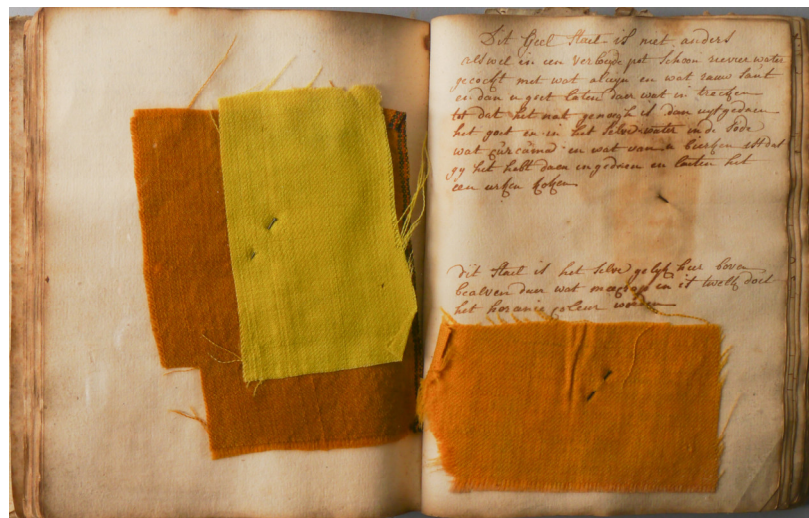 Dit Geel Stael is niet anders
als wel in een verloyde pot schoon rievier water
gecocht met wat aluijn en wat rauw
en dan u goet laten daer wat in trecken
tot dat het nat genoegh is dan uytgedaen
het goet en in het selve water in de
wat curcuma en wat van u
gy het hebt daer in gedaen en laeten het
een urken koken
dit Stael is het selve gelyk hier boven
bealven daer wat in it twelk doet
het horanie coleur worden